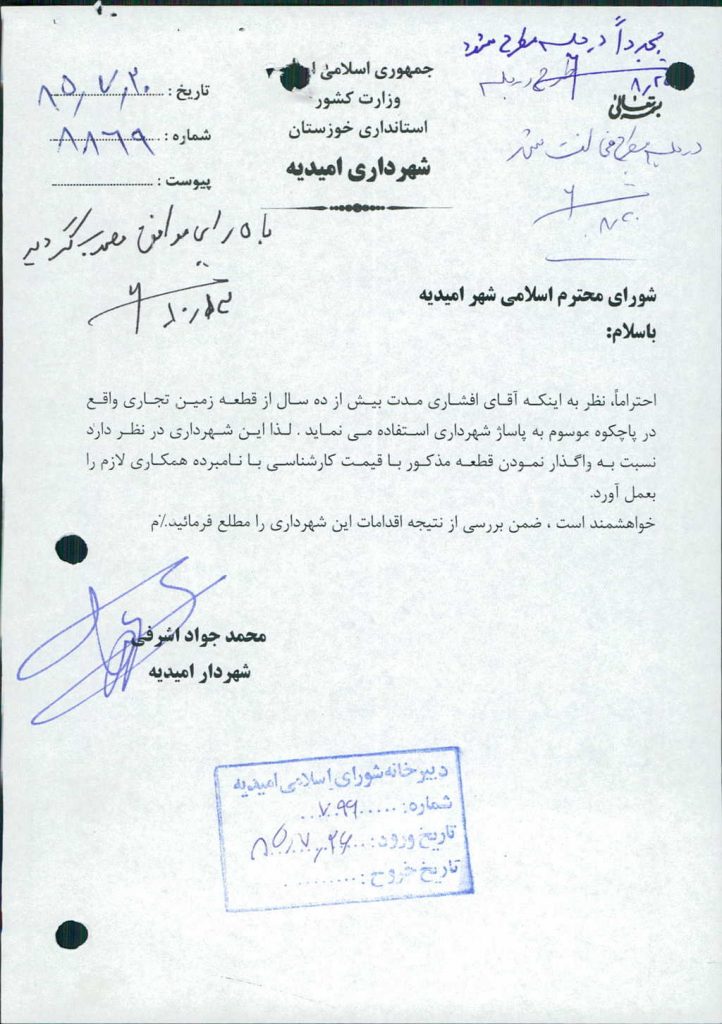 مجدداً در جلسه مطرح شود
طرح در جلسه
بسمه تعالی
در جلسه مطرح مخالفت شد
جمهوری اسلامی
وزارت کشور
استانداری خوزستان
شهرداری امیدیه
تاریخ : ۸۵,۷,۲۰
شماره : ۸۸۶۹
پیوست :
با ۵ رای موافق مصوب گردید
شورای محترم اسلامی شهر امیدیه
باسلام:
احتراماً، نظر به اینکه آقای افشاری مدت بیش از ده سال از قطعه زمین تجاری واقع
در پاچکوه موسوم به پاساژ شهرداری استفاده می نماید . لذا این شهرداری در نظر دارد
نسبت به واگذار نمودن قطعه مذکور با قیمت کارشناسی با نامبرده همکاری لازم را
بعمل آورد.
خواهشمند است ، ضمن بررسی از نتیجه اقدامات این شهرداری را مطلع فرمائید.٪م
محمد جواد اشرفی
شهردار امیدیه
دبیرخانه شورای اسلامی امیدیه
شماره: ۷۹۹
تاریخ ورود: ۸۵,۷,۲۶
تاریخ خروج: